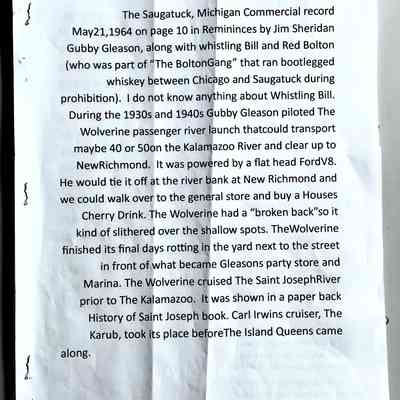 The Saugatuck, Michigan Commercial record
May21,1964 on page 10 in Remininces by Jim Sheridan
Gubby Gleason, along with whistling Bill and Red Bolton
(who was part of "The BoltonGang" that ran bootlegged
whiskey between Chicago and Saugatuck during
prohibition). I do not know anything about Whistling Bill.
During the 1930s and 1940s Gubby Gleason piloted The
Wolverine passenger river launch thatcould transport
maybe 40 or 50on the Kalamazoo River and clear up to
NewRichmond. It was powered by a flat head FordV8.
He would tie it off at the river bank at New Richmond and
we could walk over to the general store and buy a Houses
Cherry Drink. The Wolverine had a "broken back"so it
kind of slithered over the shallow spots. TheWolverine
finished its final days rotting in the yard next to the street
in front of what became Gleasons party store and
Marina. The Wolverine cruised The Saint JosephRiver
prior to The Kalamazoo. It was shown in a paper back
History of Saint Joseph book. Carl Irwins cruiser, The
Karub, took its place beforeThe Island Queens came
along.